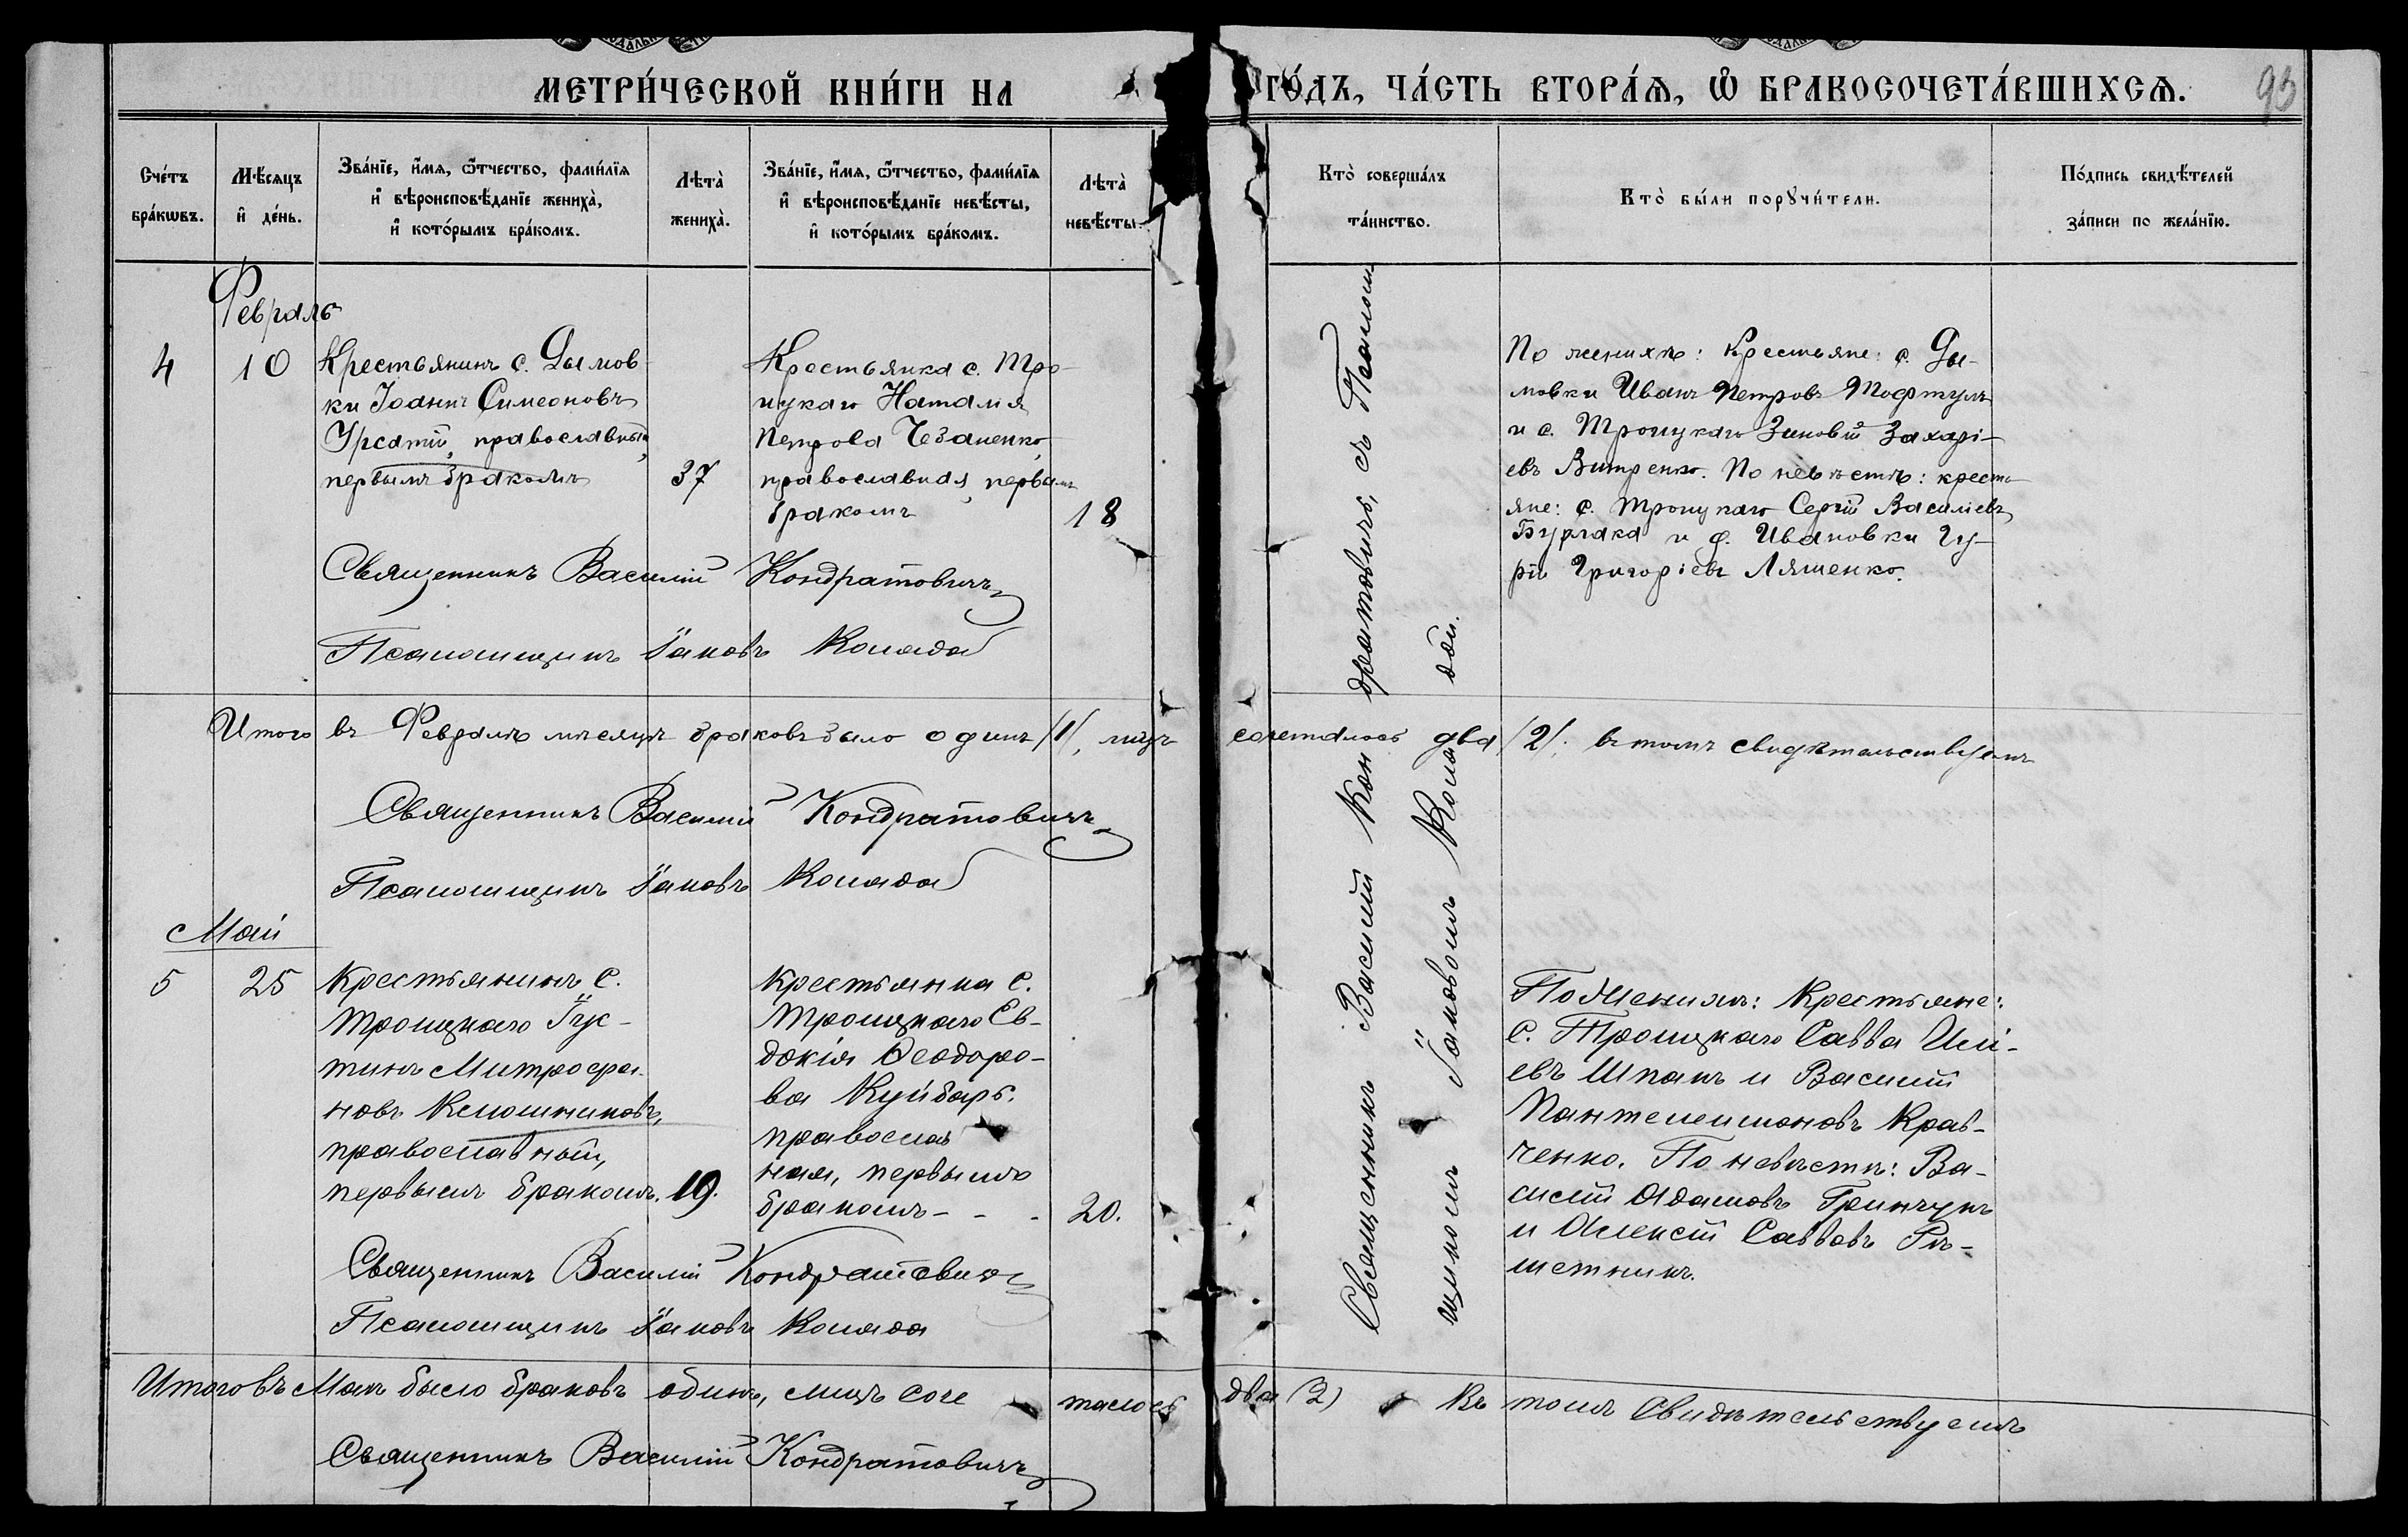 МЕТРИ́ЧЕСКОЙ КНИ́ГИ НА
ГО́ДЪ, ЧА́СТЬ ВТОРА́Ѧ, Ѡ БРАКОСОЧЕТА́ВШИХСѦ.
93
Сче́тъ
бра́кωвъ.
Мѣ́сяцъ
и де́нь.
Зва́нїе, и́мя, ѻ́тчество, фами́лїя
и вѣроисповѣ́данїе жениха̀,
и кото́рымъ бра́комъ.
Лѣта̀
жениха̀.
Зва́нїе, и́мя, ѻ́тчество, фами́лїя
и вѣроисповѣ́данїе невѣ́сты,
и кото́рымъ бра́комъ.
Лѣта̀
невѣ́сты.
Кто̀ соверша́лъ
та́инство.
Кто̀ бы́ли порꙋчи́тели.
По́дпись свидѣ́телей
за́писи по жела́нїю.
Февраль
4
10
Крестьянинъ с. Дымов-
ки Іоаннъ Симеоновъ
Урсатій, православный,
первымъ бракомъ
37
Крестьянка с. Тро-
ицкаго Наталія
Петрова Чебаненко,
православная, первымъ
бракомъ
18
По женихѣ: Крестьяне: с. Ды-
мовки Иванъ Петровъ Мофтулъ
и с. Троицкаго Зиновій Захарі-
евъ Витренко. По невѣстѣ: кресть-
яне: с. Троицкаго Сергій Василіевъ
Бурлака и с. Ивановки Гу-
рій Григоріевъ Ляшенко.
Священникъ Василій Кондратовичъ
Псаломщикъ Іаковъ Коляда
Священникъ Василій Кондратовичъ, съ Псалом-
щикомъ Іаковомъ Колядой.
Итого въ Февралѣ мѣсяцѣ браковъ было одинъ /1/, лицъ сочеталось два /2/. въ томъ свидѣтельствуемъ
Священникъ Василій Кондратовичъ
Псаломщикъ Іаковъ Коляда
Май
5
25
Крестьянинъ с.
Троицкаго Іус-
тинъ Митрофа-
новъ Клюшниковъ,
православный,
первымъ бракомъ.
19.
Крестьянка с.
Троицкаго Ев-
докія Ѳеодоро-
ва Куйбарь.
православ
ная, первымъ
бракомъ - - -
20.
По Женихѣ: Крестьяне:
с. Троицкаго Савва Илі-
евъ Шпакъ и Василій
Пантелеимоновъ Крав-
ченко. По невѣстѣ: Ва-
силій Адамовъ Гринчукъ
и Алексій Саввовъ Рѣ-
шетникъ.
Священникъ Василій Кондратовичъ
Псаломщикъ Іаковъ Коляда
Итого въ Маѣ было браковъ одинъ, лицъ соче талось два (2) Въ томъ Свидѣтельствуемъ
Священникъ Василій Кондратовичъ